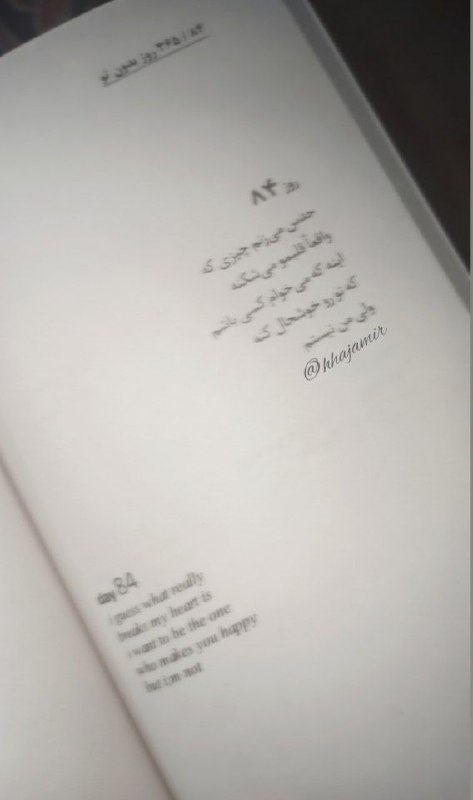 ۸۴ / ۳۶۵ روز بدون تو
روز ۸۴
حدس می‌زنم چیزی که
واقعاً قلبمو می‌شکنه
اینه که می‌خوام کسی باشم
که تو رو خوشحال کنه
ولی من نیستم
@hhajamir
day 84
i guess what really
breaks my heart is
i want to be the one
who makes you happy
but i,m not